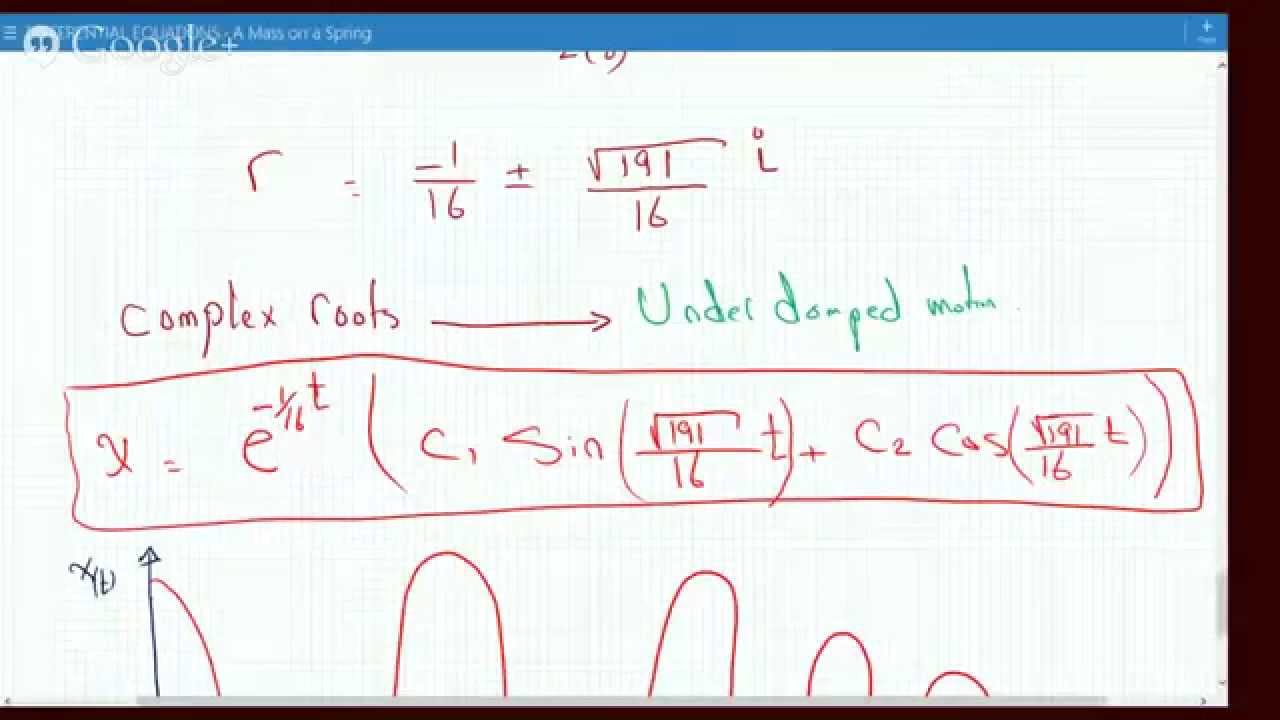 DIFFERENTIAL EQUATIONS - A Mass on a Spring
Google+
2(8)
r = -1/16 ± √191/16 i
Complex roots → Under damped motion.
x = e^(-1/16 t) (C₁ Sin(√191/16 t) + C₂ Cos(√191/16 t))
x(t)